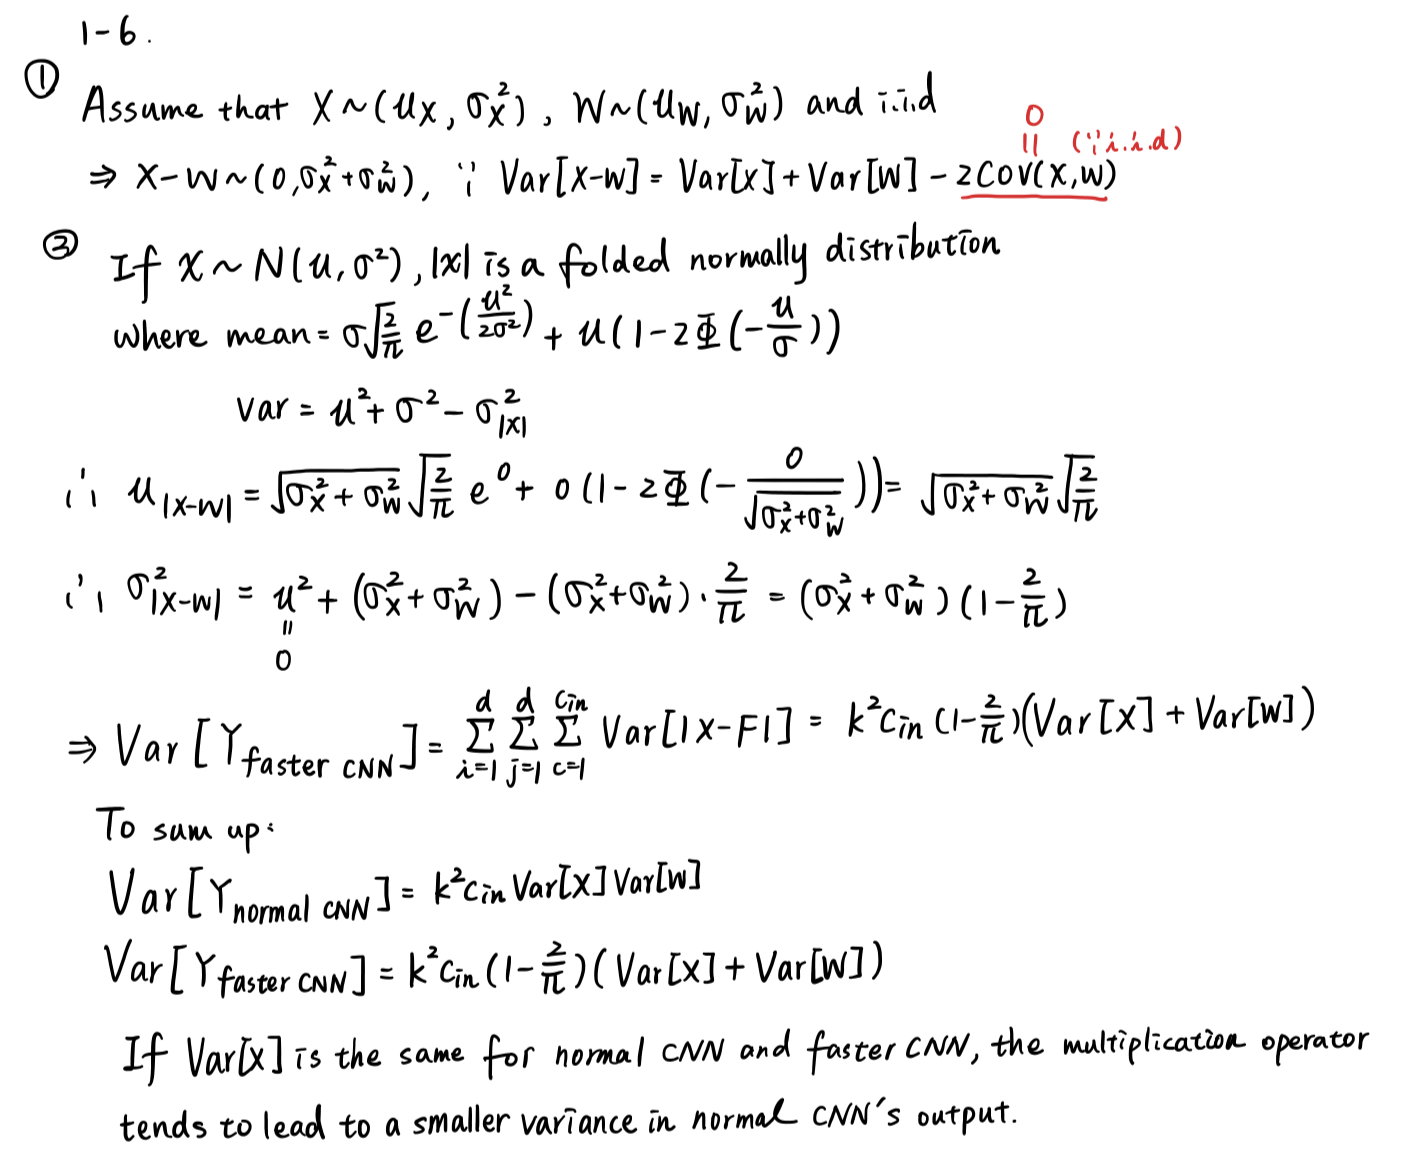 1-6.
① Assume that X~(μx, σx²), W~(μw, σw²) and i.i.d
⇒ X-W~(0, σx²+σw²), ∵ Var[X-W] = Var[X]+Var[W]-2COV(X,W)
0
॥ (∵i.i.d)
② If X~N(μ,σ²), |x| is a folded normally distribution
where mean = σ√(2/π) e^-(μ²/2σ²) + μ(1-2Φ(-μ/σ))
Var = μ²+σ²-σ²|x|
∴ μ|x-w| = √(σx²+σw²) √(2/π) e⁰ + 0(1-2Φ(-0/√(σx²+σw²))) = √(σx²+σw²) √(2/π)
∴ σ²|x-w| = μ² + (σx²+σw²) - (σx²+σw²)·2/π = (σx²+σw²)(1-2/π)
॥
0
⇒ Var[Y faster CNN] = Σ(i=1, d) Σ(j=1, d) Σ(c=1, Cin) Var[|X-F|] = k²Cin(1-2/π)(Var[X]+Var[W])
To sum up:
Var[Y normal CNN] = k²Cin Var[X]Var[W]
Var[Y faster CNN] = k²Cin(1-2/π)(Var[X]+Var[W])
If Var[X] is the same for normal CNN and faster CNN, the multiplication operator
tends to lead to a smaller variance in normal CNN's output.